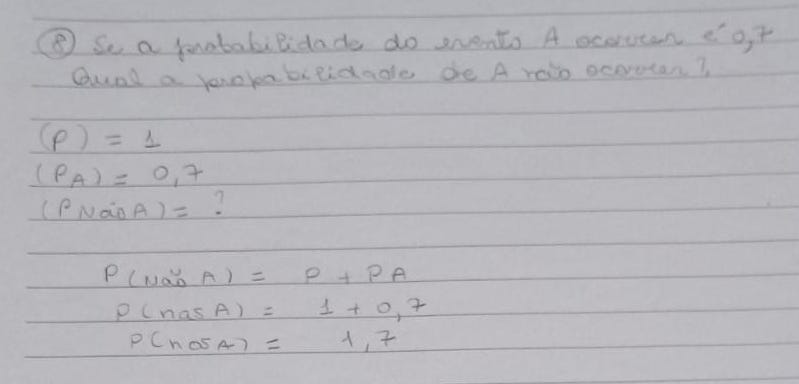 ⑧ Se a probabilidade do evento A ocorrer é 0,7
Qual a probabilidade de A não ocorrer?
(P) = 1
(PA) = 0,7
(PNãoA) = ?
P(Não A) = P + PA
P(nas A) = 1 + 0,7
P(nosA) = 1,7